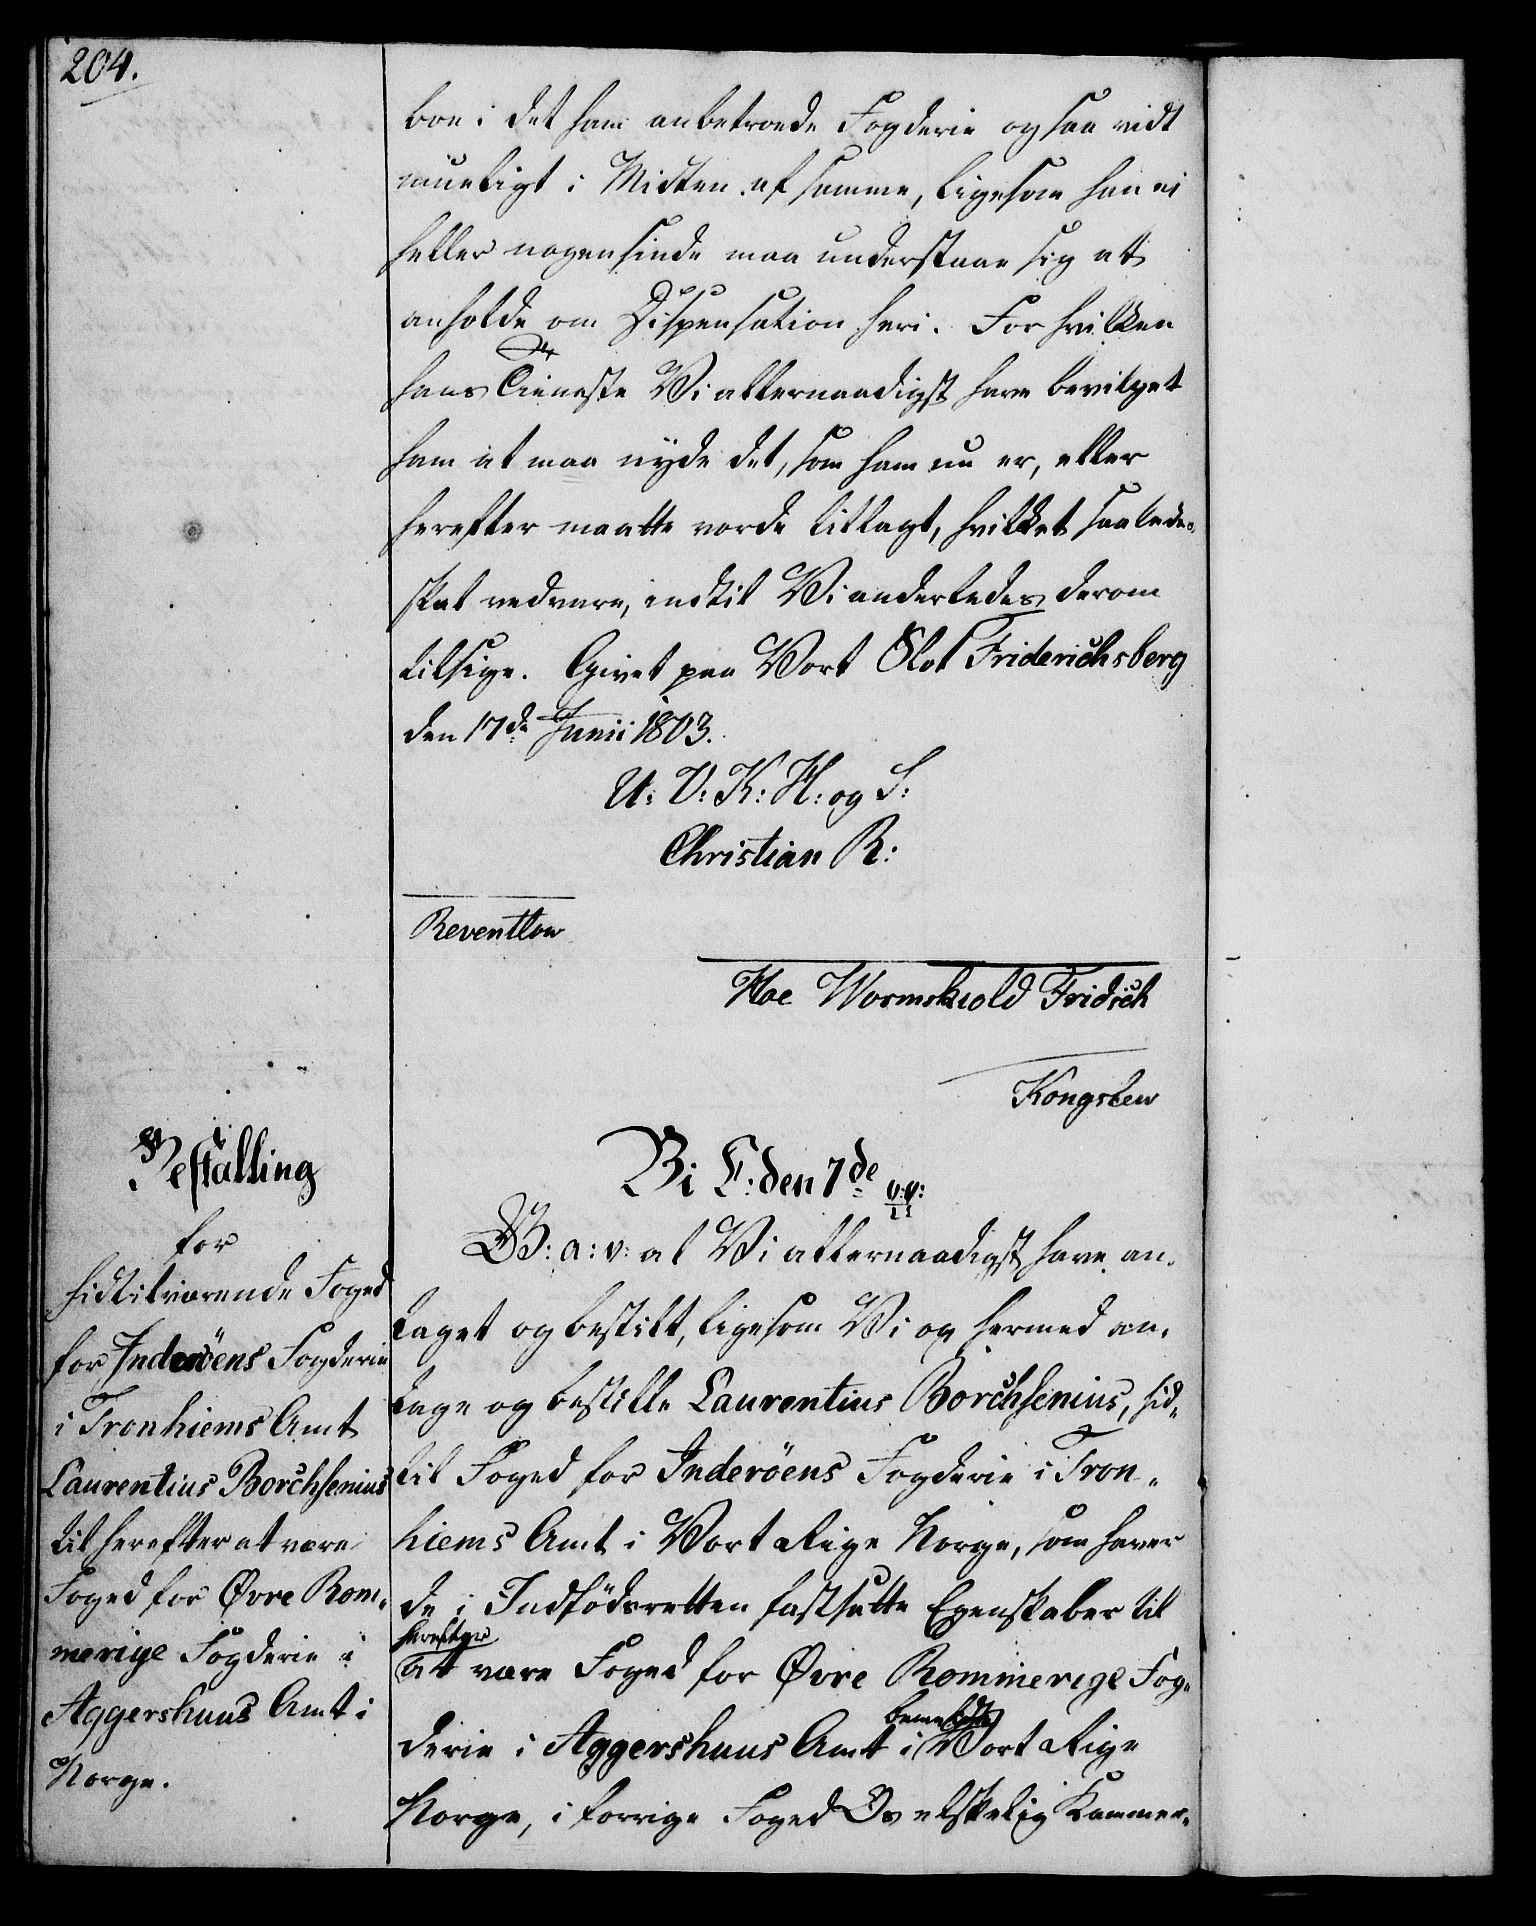 204.
boe i det ham anbetroede Fogderie og saa vidt
mueligt i Midten af samme, ligesom han ei
heller nogensinde maa understaae sig at
anholde om Dispensation heri. For hvilken
hans Tieneste Vi allernaadigst have bevilget
ham at maa nyde det, som ham nu er, eller
herefter maatte vorde tillagt, hvilket saalede„
skal vedvare, indtil Vi anderledes derom
tilsige. Givet paa Vort Slot Friderichsberg
den 17de Junii 1803.
U: V: K: H: og S:
Christian R:
Reventlow
Hoe Wormskiold Fridsch
Kongslew
Bestalling
for
hidtilværende Foged
for Inderöens Fogderie
i Tronhiems Amt
Laurentius Borchsenius
til herefter at være
Foged for Øvre Rom„
merige Fogderie i
Aggershuus Amt i
Norge.
Vi C: den 7de
G: a: v: at Vi allernaadigst have an„
taget og bestilt, ligesom Vi og hermed an„
tage og bestille Laurentius Borchsenius, hid„
til Foged for Inderöens Fogderie i Tron„
hiems Amt i Vort Rige Norge, som haver
de i Indfödsretten fastsatte Egenskaber til
herefter
at være Foged for Øvre Rommerige Fog„
bemeldte
derie i Aggershuus Amt i Vort Rige
Norge, i forrige Foged Os elskelig Kammer„